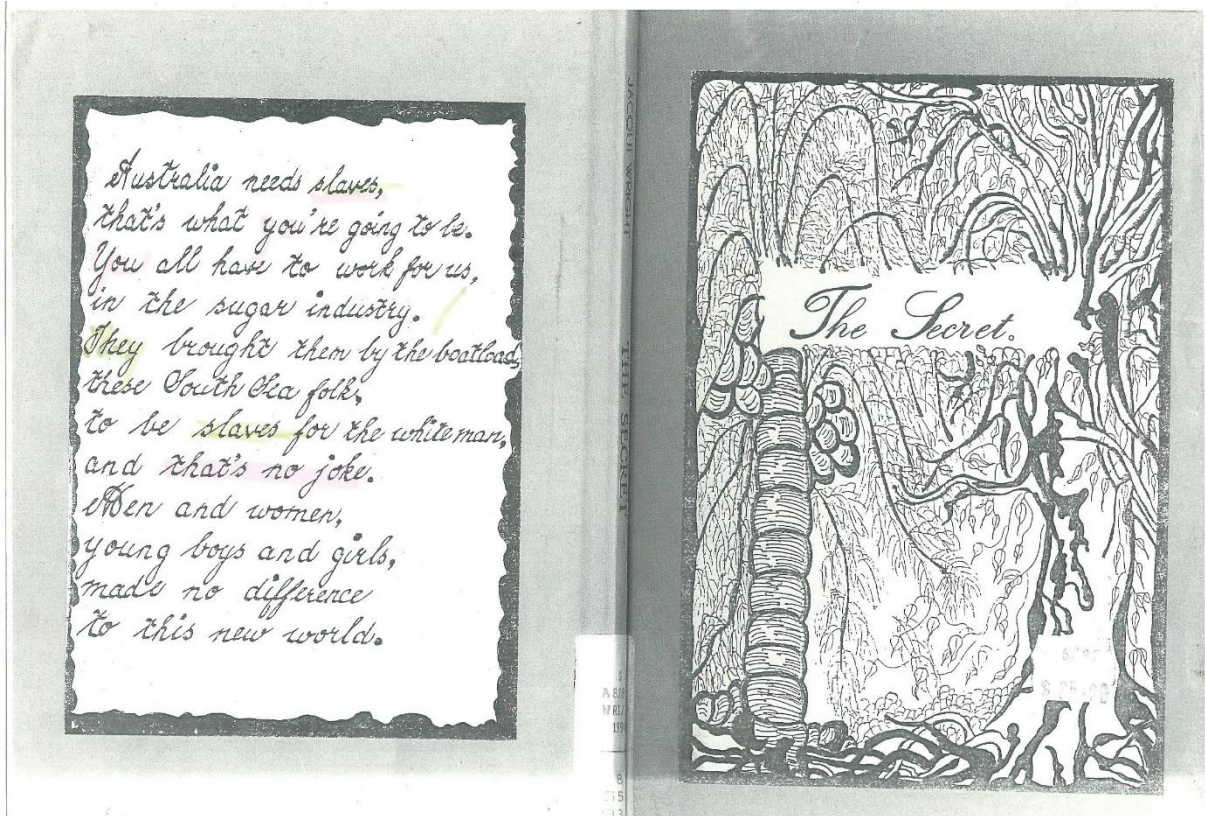 Australia needs slaves,
that's what you're going to be.
You all have to work for us,
in the sugar industry.
They brought them by the boatload,
these South Sea folk,
to be slaves for the white man,
and that's no joke.
Men and women,
young boys and girls,
made no difference
to this new world.
JACQUI WRIGHT THE SECRET
The Secret.